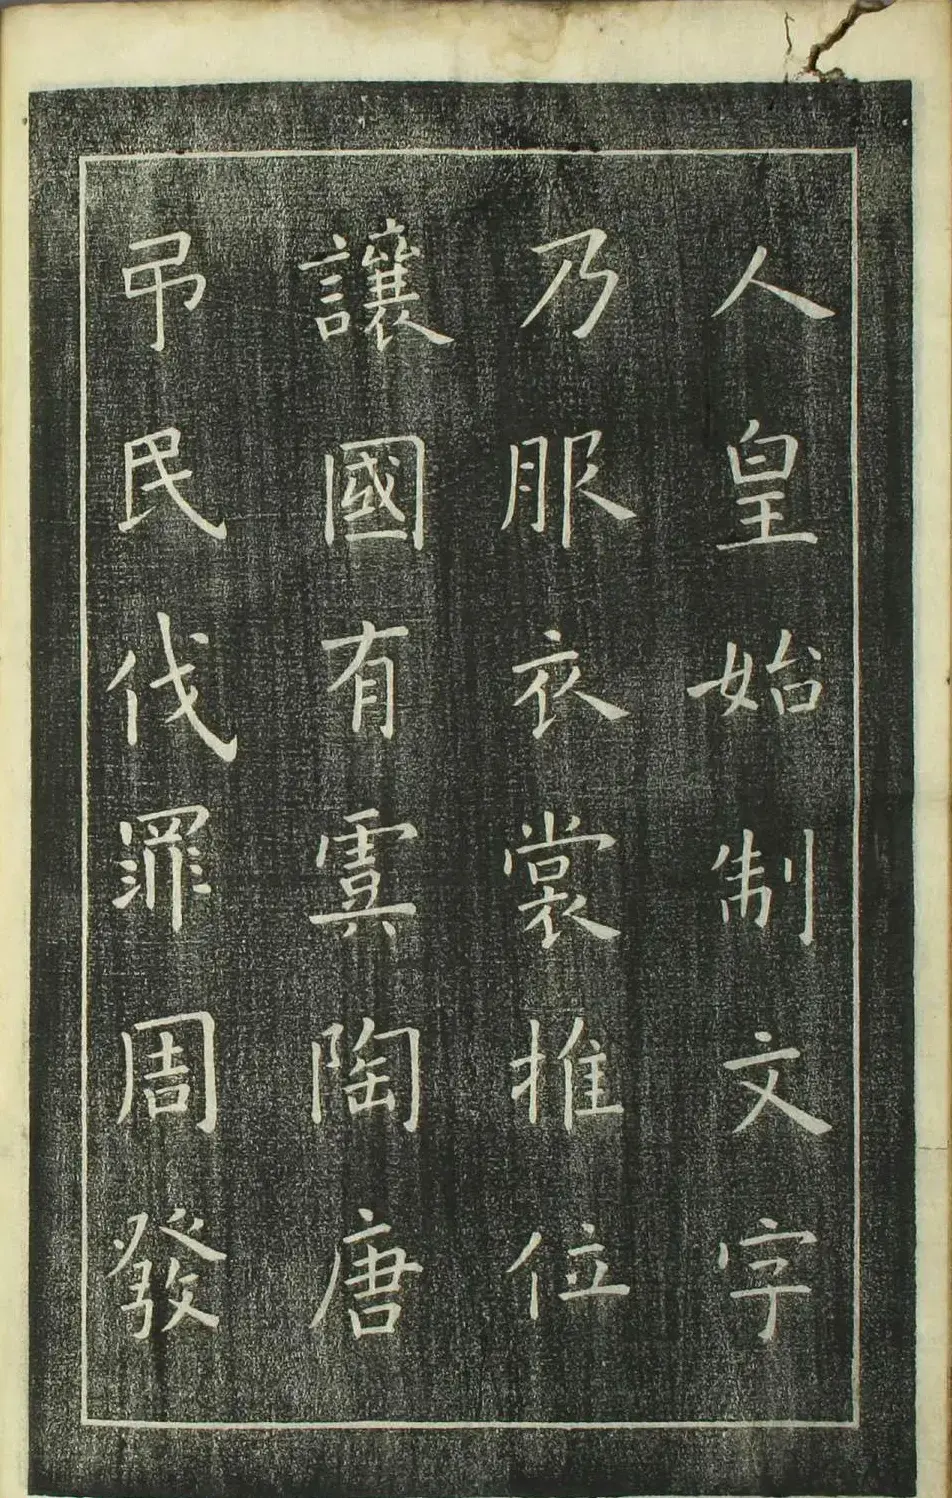 人皇始制文字
乃服衣裳推位
讓國有虞陶唐
弔民伐罪周發